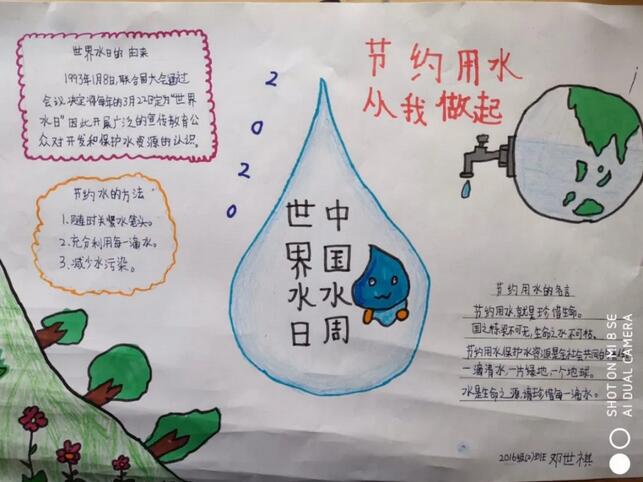 世界水日的由来
1993年1月8日,联合国大会通过
会议决定将每年的3月22日定为"世界
水日"因此开展广泛的宣传教育公
众对开发和保护水资源的认识。
2
0
2
0
节约用水
从我做起
节约水的方法
1.随时关紧水笼头。
2.充分利用每一滴水。
3.减少水污染。
中国水周
世界水日
节约用水的名言
节约用水,就是珍惜生命。
国之栋梁不可无,生命之水不可枯。
节约用水,保护水资源是全社会共同的
一滴清水,一片绿地,一个地球。
水是生命之源,请珍惜每一滴水。
2016级(2)班 邓世祺
SHOT ON MI 8 SE
AI DUAL CAMERA